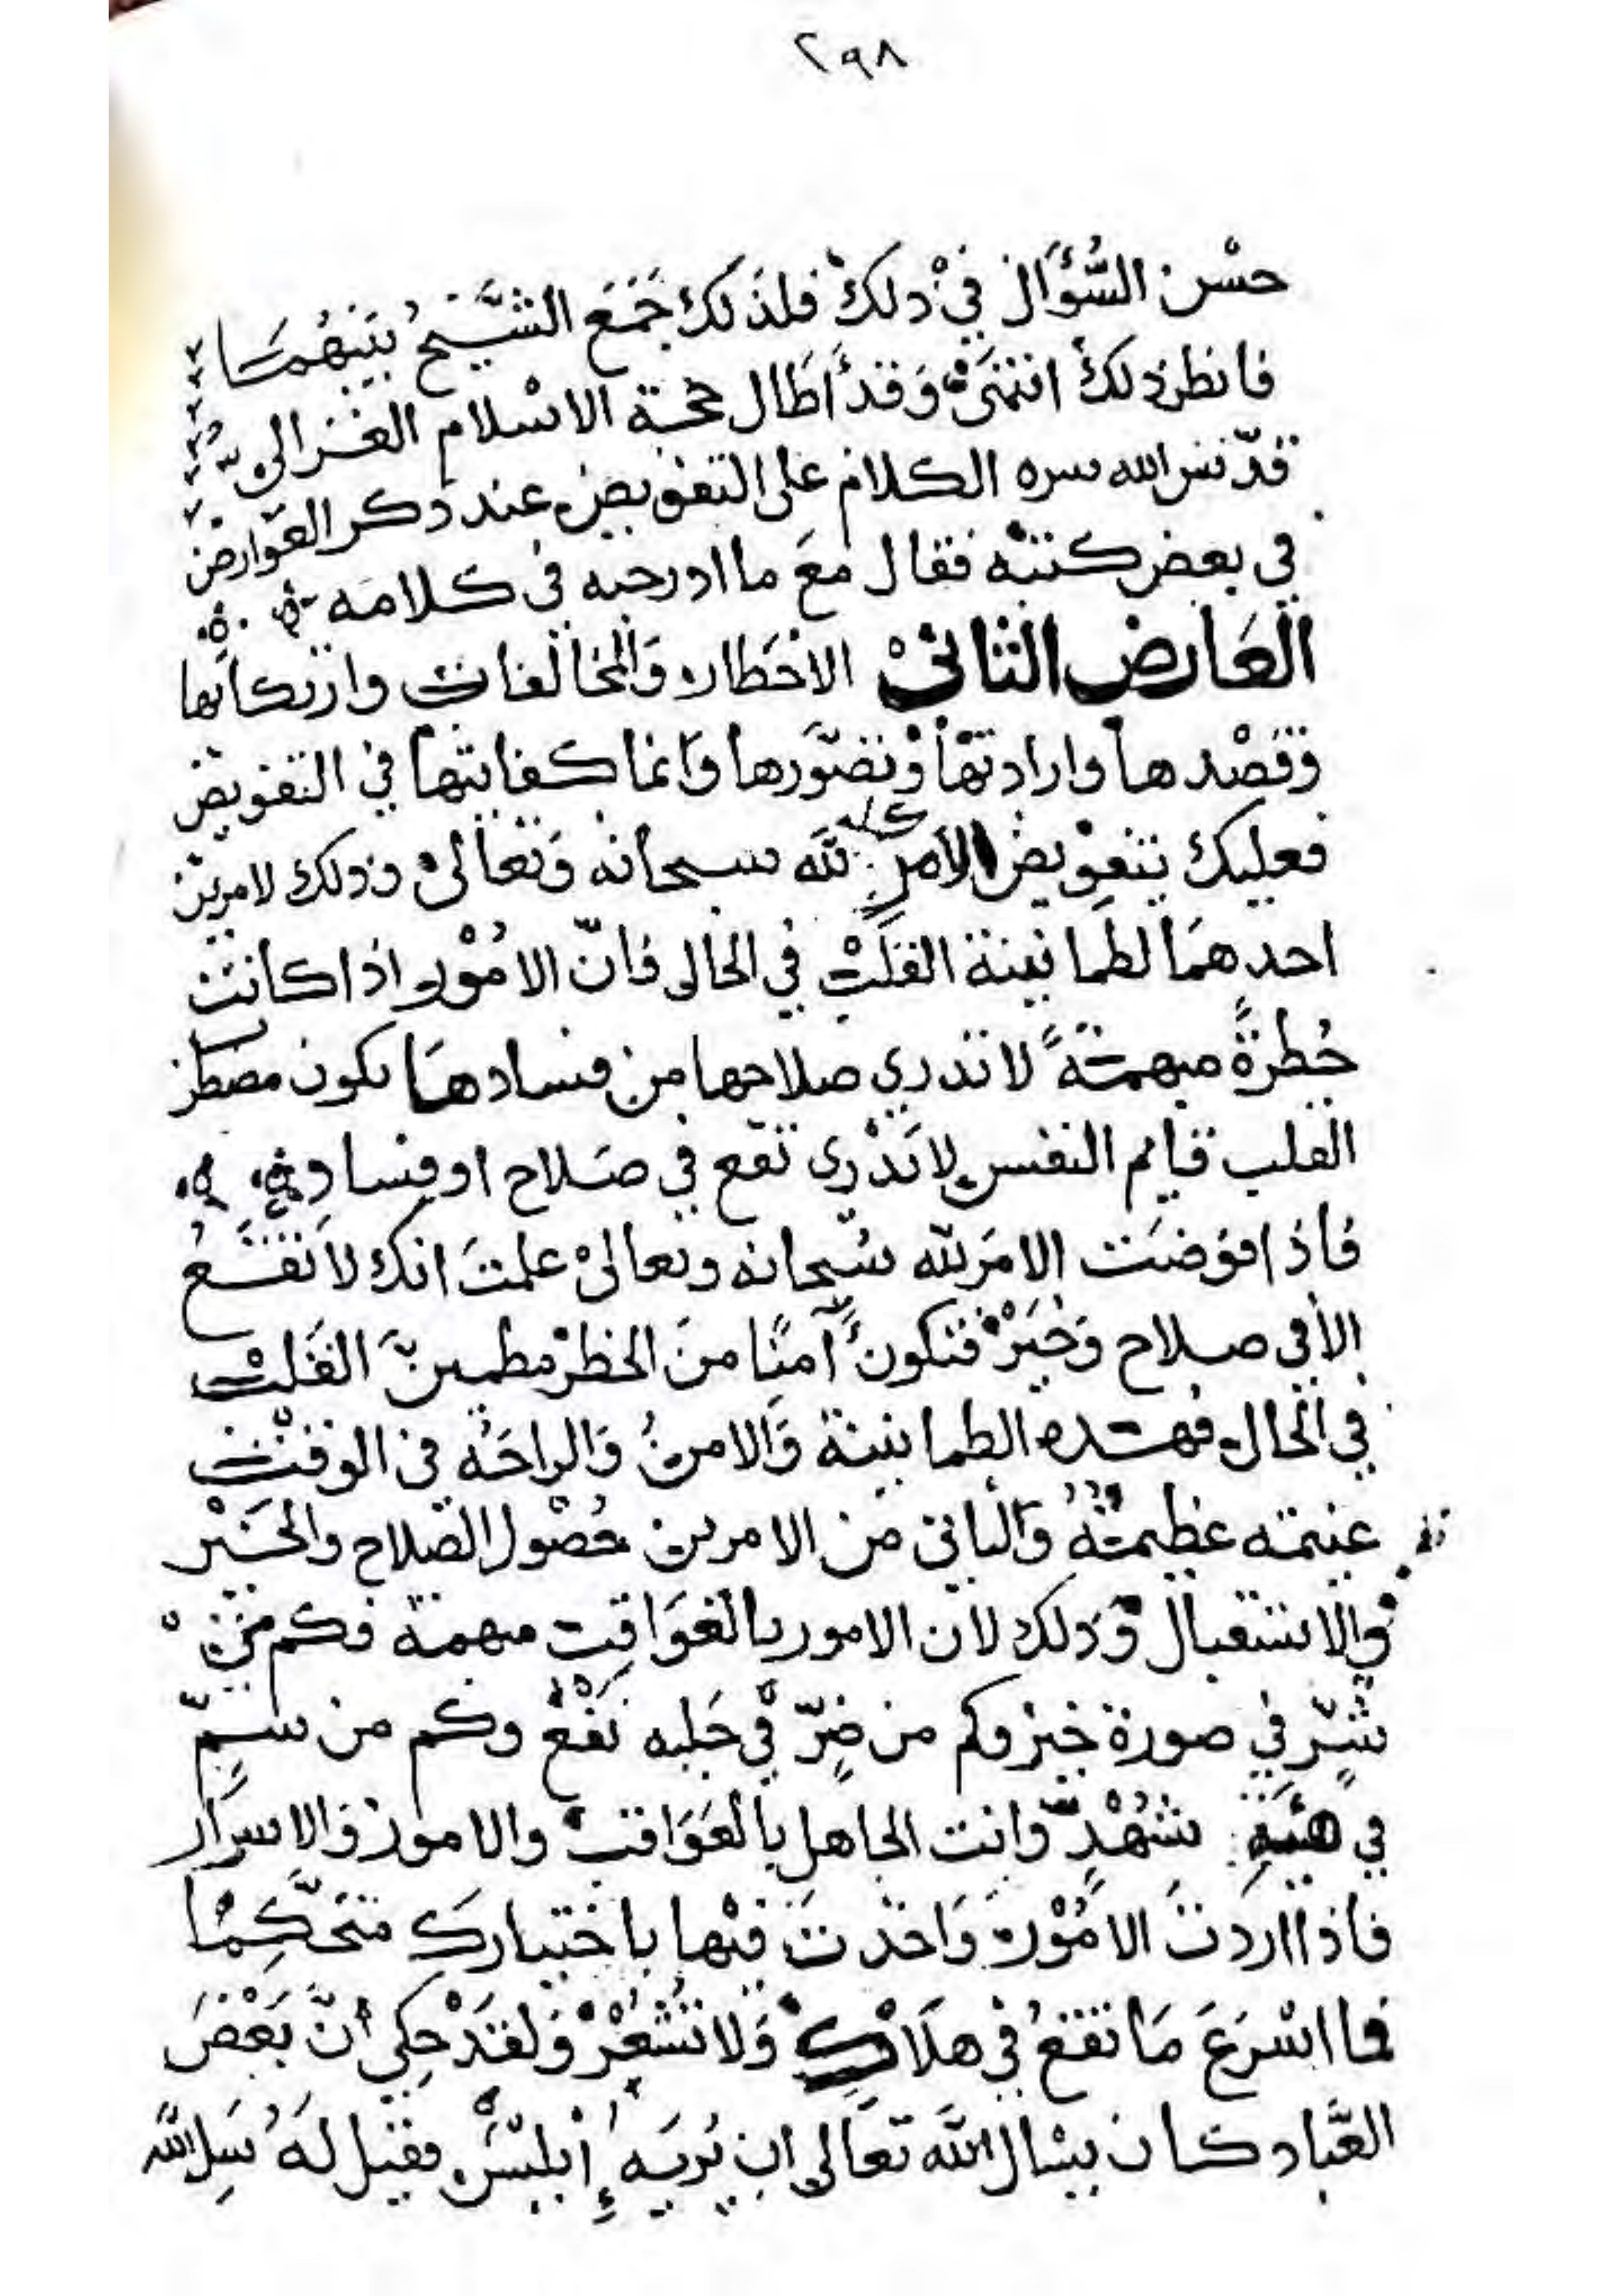 ٢٩٨
حسْن السُّؤَال في ذلك فلذلك جَمَعَ الشَّيخُ بَيْنهُمَا
فانظر ذلك انتهى وَقدْ أطَال حجة الاسْلام الغزالي
قدّس الله سره الكلام على التفويض عند ذكر العَوارض
في بعض كتبه فقال معَ ما ادرجه في كلامه
العَارض الثاني الاخطار وَالمخالفات وارتكابها
وقصْدها وارادتها وتصَوّرها وَانما كفايتها في التفويض
فعليك بتفويض الأمر كله لله سبحانه وَتعالى وذلك لامرين
احدهمَا لطمانينة القلب في الحال فانّ الامُوْر اذا كانت
خُطرةً مبهمةً لا تدري صلاحها من فسادهَا تكون مضطر
القلب قايم النفس لا تَدْري تقع في صَلاح او فساد
فاذا فوضت الامرَ لله سُبحانه وتعالى علمتَ انك لا تقَعُ
الا في صلاح وَخَيْر فتكون آمنًا منَ الخطر مطمين القلب
في الحال فهذه الطمانينة وَالامنُ وَالراحَة في الوقت
غنيمة عظيمةُ وَالثاني من الامرين حُصُول الصّلاح والخَيْر
والاستقبال وَذلك لان الامور بالعَوَاقب مبهمة فكم من
شّرٍ في صورة خير وكم من ضِرّ في حَليه نَفْعْ وكم من سّمٍ
في هَيْئَةِ شَهْدٍ وَانت الجاهل بالعَوَاقب والامور وَالاسرَار
فاذا اردتَ الامُوْر وَاخذتَ فيْها باختيارك متحَكِمًا
فما اسْرَعَ مَا تقعُ في هلاك وَلا تُشْعُرْ وَلقدْ حِكي أنّ بَعْضَ
العبَّاد كان يسْال الله تعَالى ان يُريَه إبليسْ فقيل لهُ سَلِ الله